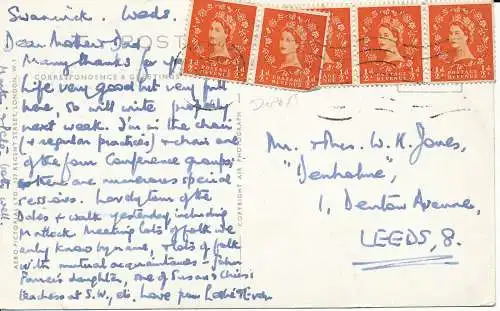 Swanwick. Weds.
Dear Mother & Dad
Many thanks for yr
Life very good but very full
here, so will write properly
next week. I'm in the choir
(& regular practices) & chair one
of the four Conference groups;
& there are numerous special
sessions. Lovely tour of the
Dales & walk yesterday, including
Matlock. Meeting lots of folk we
only know by name, & lots of folk
with mutual acquaintances - John
daughter, one of Susan's
teachers at S.W., etc. Love from
POST
CORRESPONDENCE & GREETINGS
COPYRIGHT AIR PHOTOGRAPH
AERO PICTORIAL LTD 137 REGENT STREET, LONDON, W.1
POSTAGE
REVENUE
½d
½d
½d
½d
½d
Mr. & Mrs. W. H. Jones,
"Denholme",
1, Denton Avenue,
LEEDS, 8.